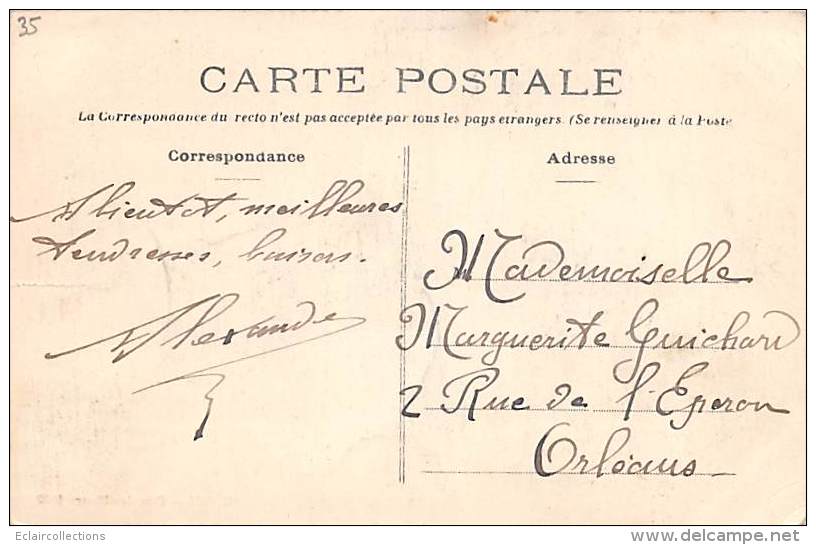 35
CARTE POSTALE
La Correspondance du recto n'est pas acceptée par tous les pays etrangers (Se renseigner à la Poste
Correspondance
Adresse
A bientôt, meilleures
tendresses, baisers.
Alexandre
Mademoiselle
Marguerite Guichard
2 Rue de l'Eperon
Orléans
Eclaircollections
delcampe.net